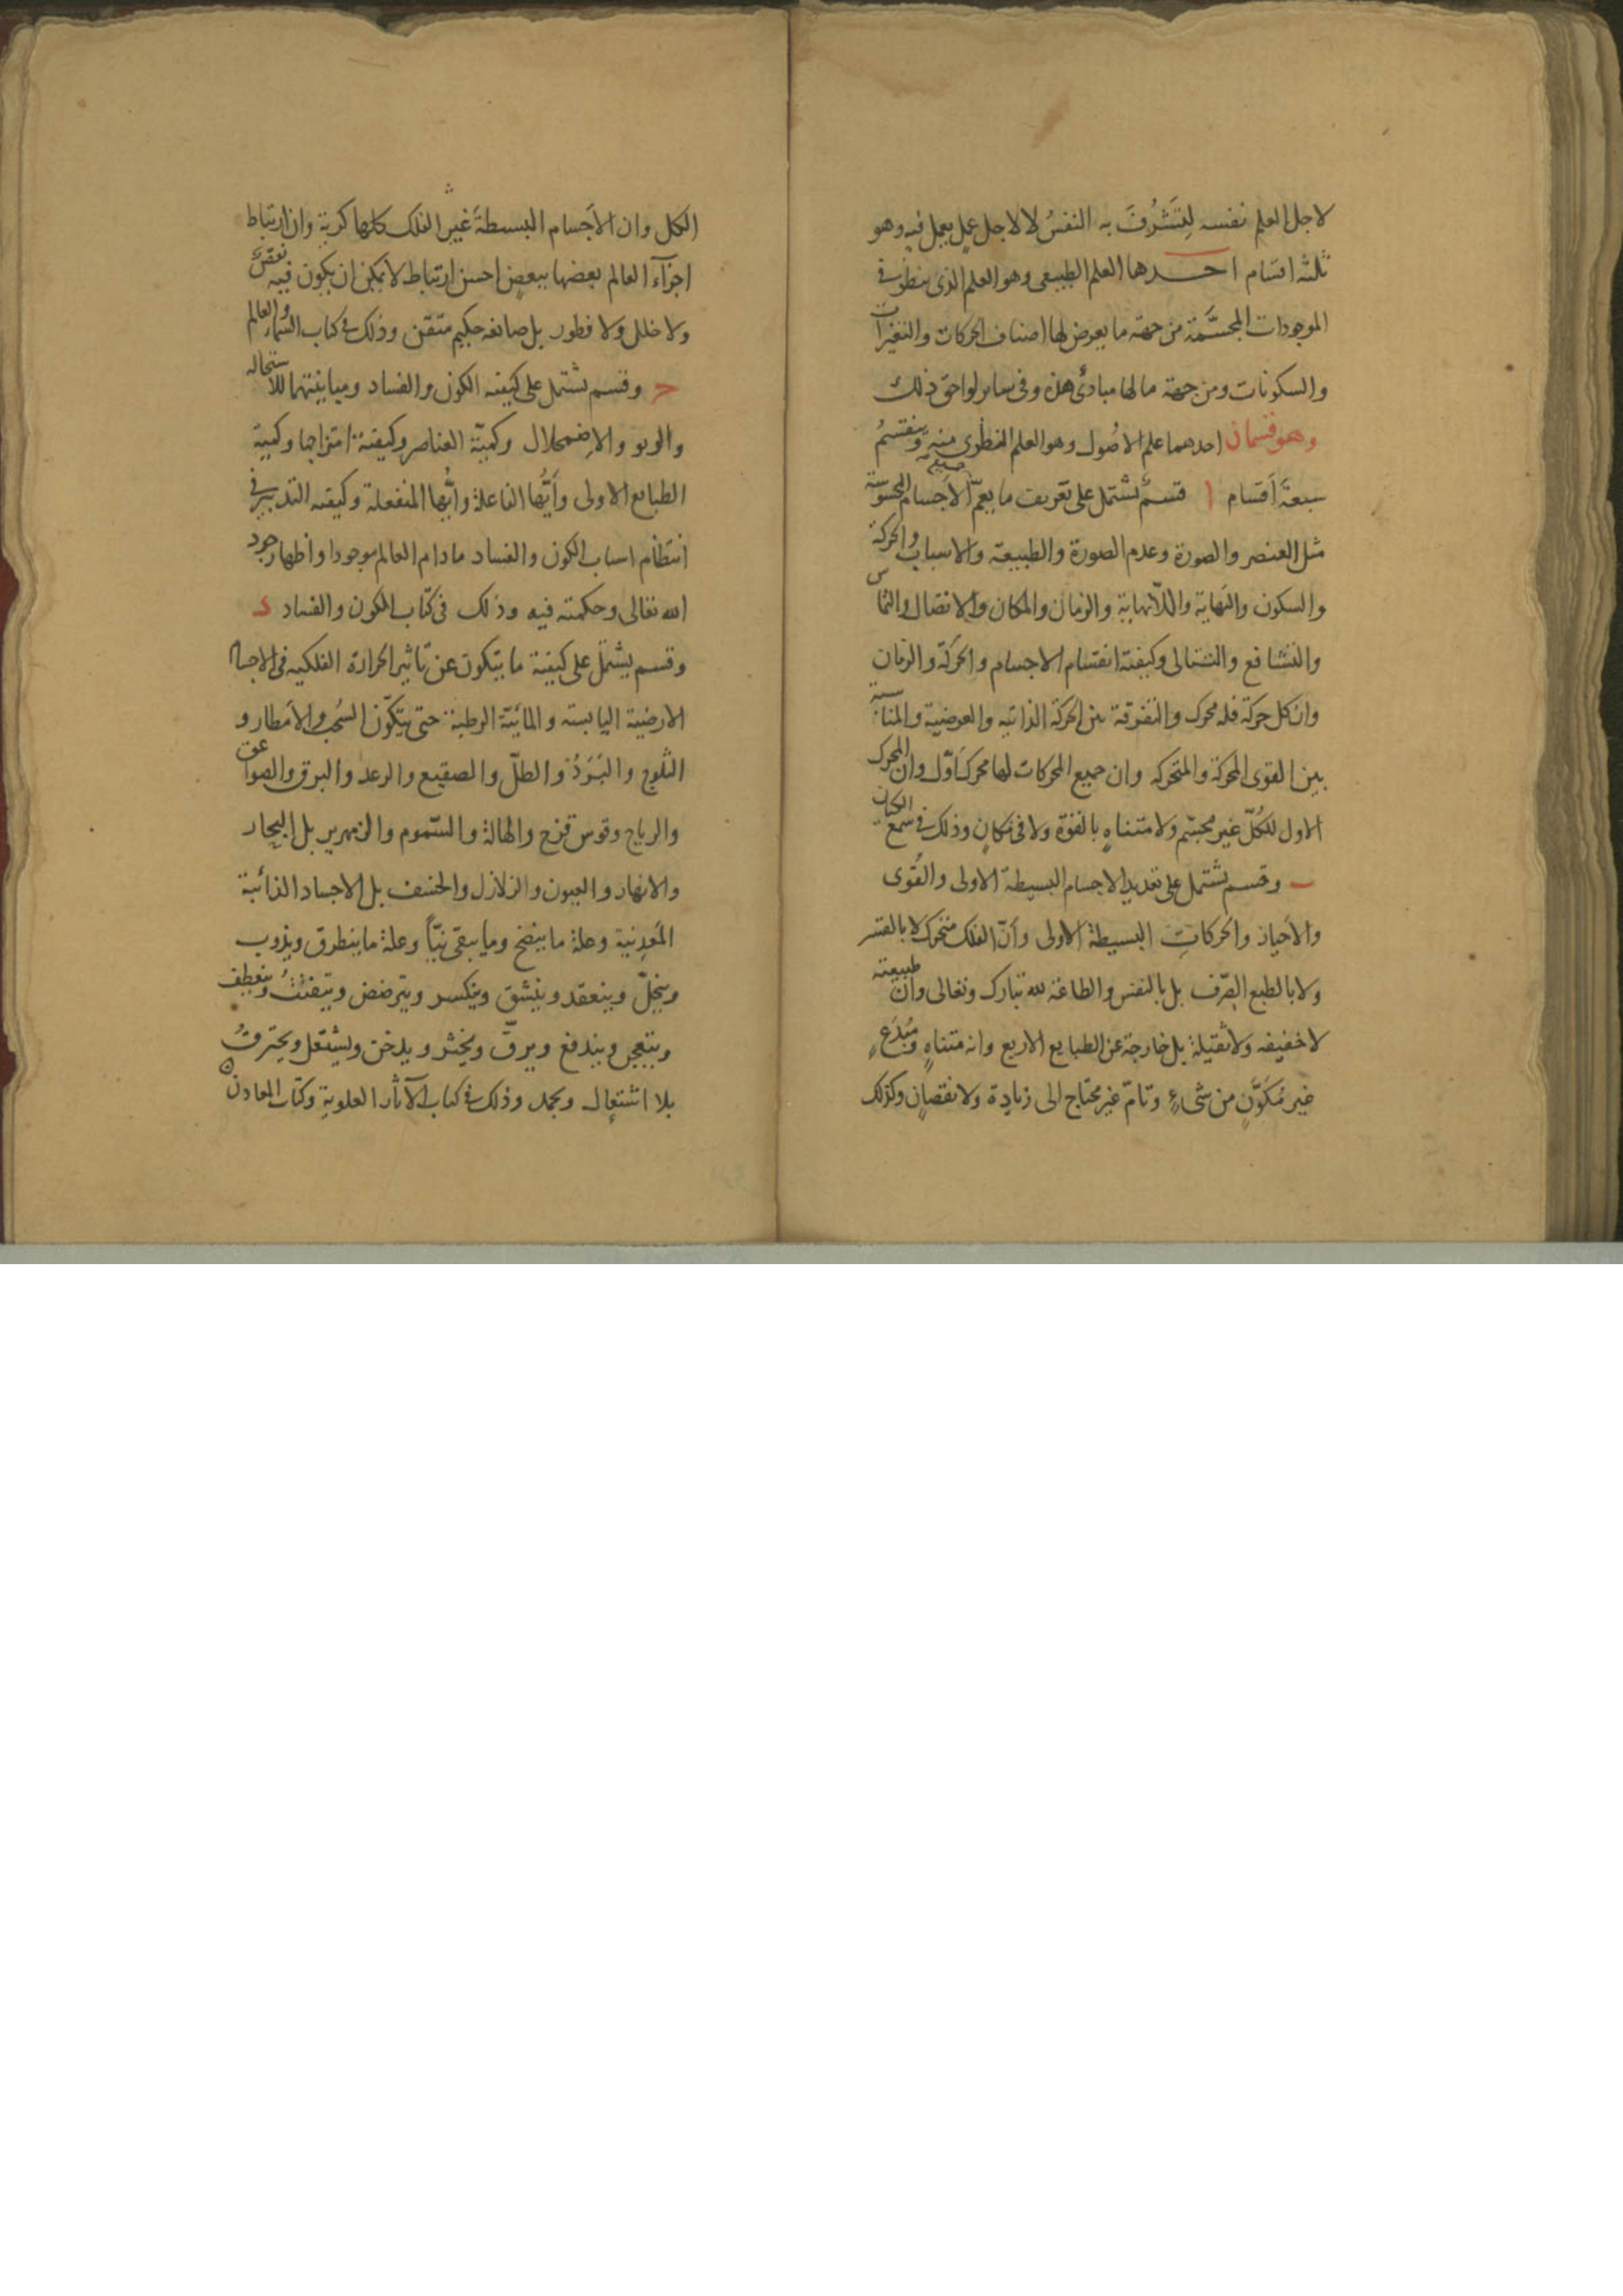 لاجل العلم نفسه لِتَشْرُفَ به النفسُ لا لاجل عمل يعمل فيه وهو
ثلثه اقسام احدها العلم الطبيعى وهو العلم الذى ينظر فى
الموجودات المجسَّمة من جهة ما يعرض لها اصناف الحركات والتغيرات
والسكونات ومن جهة ما لها مبادئ هذه وفى ساير لواحق ذلك
وهو قسمان احدهما علم الاصُول وهو العلم النظرى منه وينقسمُ
سبعةَ اَقسام ا قسمٌ يشتمل على تعريف ما يعمّ جميع الاجسام المحسوسة
مثل العنصر والصورة وعدم الصورة والطبيعة والاسباب والحركة
والسكون والنهاية واللّانهاية والزمان والمكان والاتصال والتماس
والتشافع والتتالى وكيفية انقسام الاجسام والحركة والزمان
وان كل حركة فله محرك والتفرقة بين الحركة الذاتيه والعرضية والمناسبة
بين القوى المحركة والمتحركه وان جميع المحركات لها محرك اَوّل وان المحرك
الاول للكُلّ غير مجسّم ولا متناهٍ بالقوّة ولا فى مكانٍ وذلك فى سمع الكيان
ب وقسم يشتمل على تعديد الاجسام البسيطة الاولى والقُوى
والاَحياز والحركاتِ البسيطة الاولى وأنّ الفلك متحرك لا بالقسر
ولا بالطبع الصِّرف بل بالنفس والطاعة لله تبارك وتعالى وان طبيعته
لا خفيفه ولا ثقيلة بل خارجة عن الطبايع الاربع وانه متناهٍ ومُبْدَعٍ
غير مُكَوَّنٍ من شىءٍ وتامّ غير محتاج الى زيادة ولا نقصان وكذلك
الكل وان الاَجسام البسيطةَ غيرَ الفلك كلها كرية وان ارتباط
اجزآء العالم بعضها ببعضٍ احسن ارتباط لا يمكن ان يكون فيه نقصٌ
ولا خلل ولا فطور بل صانعه حكيم متقن وذلك فى كتاب السمآء والعالم
ج وقسم يشتمل على كيفية الكون والفساد ومباينتهما للاستحاله
والربو والاِضمحلال وكميّة العناصر وكيفية امتزاجها وكمية
الطبايع الاولى وأَيُّها الفاعلة وأَيُّها المنفعلة وكيفية التدبير فى
انتظام اسباب الكون والفساد مادام العالم موجودا واظهار جود
الله تعالى وحكمته فيه وذلك فى كتاب الكون والفساد د
وقسم يشتمل على كيفية ما يتكون عن تاثير الحرارة الفلكيه فى الاجسام
الارضية اليابسة والمائيّة الرطبة حتى يتكوّن السُحُب والاَمطار و
الثلوج والبَرَدُ والطلّ والصقيع والرعد والبرق والصواعق
والرياح وقوس قزح والهالة والسّموم والزمهرير بل البحار
والانهار والعيون والزلازل والخسف بل الاجساد الذائبة
المَعدِنية وعلة ما ينضج وما يبقى نِيّاً وعلة ما ينطرق ويذوب
وينحلّ وينعقد وينشق وينكسر ويترضض ويتفتّتُ وينعطف
وينعجن ويندفع ويرقّ ويخثر ويدخن ويشتعل ويحترقُ
بلا اشتعال ويجمد وذلك فى كتاب الآثار العلوية وكتاب المعادن